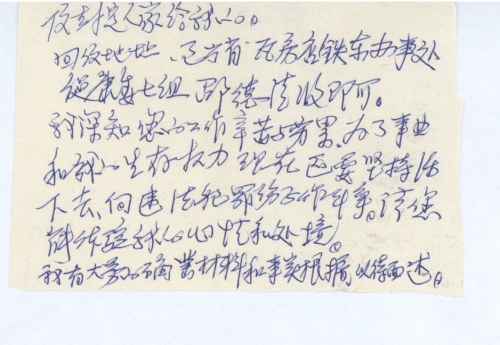 给我
回复地址，辽宁省瓦房店铁东办事处
委七组 邵德清收即可。
我深知您的工作辛苦与劳累，为了事业
和我的生存权力 现在还要坚持活
下去，向违法犯罪份子作斗争。请您
能体验我的心情和处境。
我有大量的确凿材料和事实根据，以待面述。